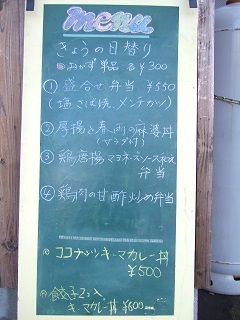 menu
きょうの日替り
おかず単品 各¥300
① 盛合せ弁当 ¥550
(塩さば焼、メンチカツ)
② 厚揚と春雨の麻婆丼
(サラダ付)
③ 鶏唐揚マヨネーズソース
弁当
④ 鶏肉の甘酢炒め弁当
ココナッツキーマカレー丼
¥500
餃子2ツ入
キーマカレー丼 ¥600